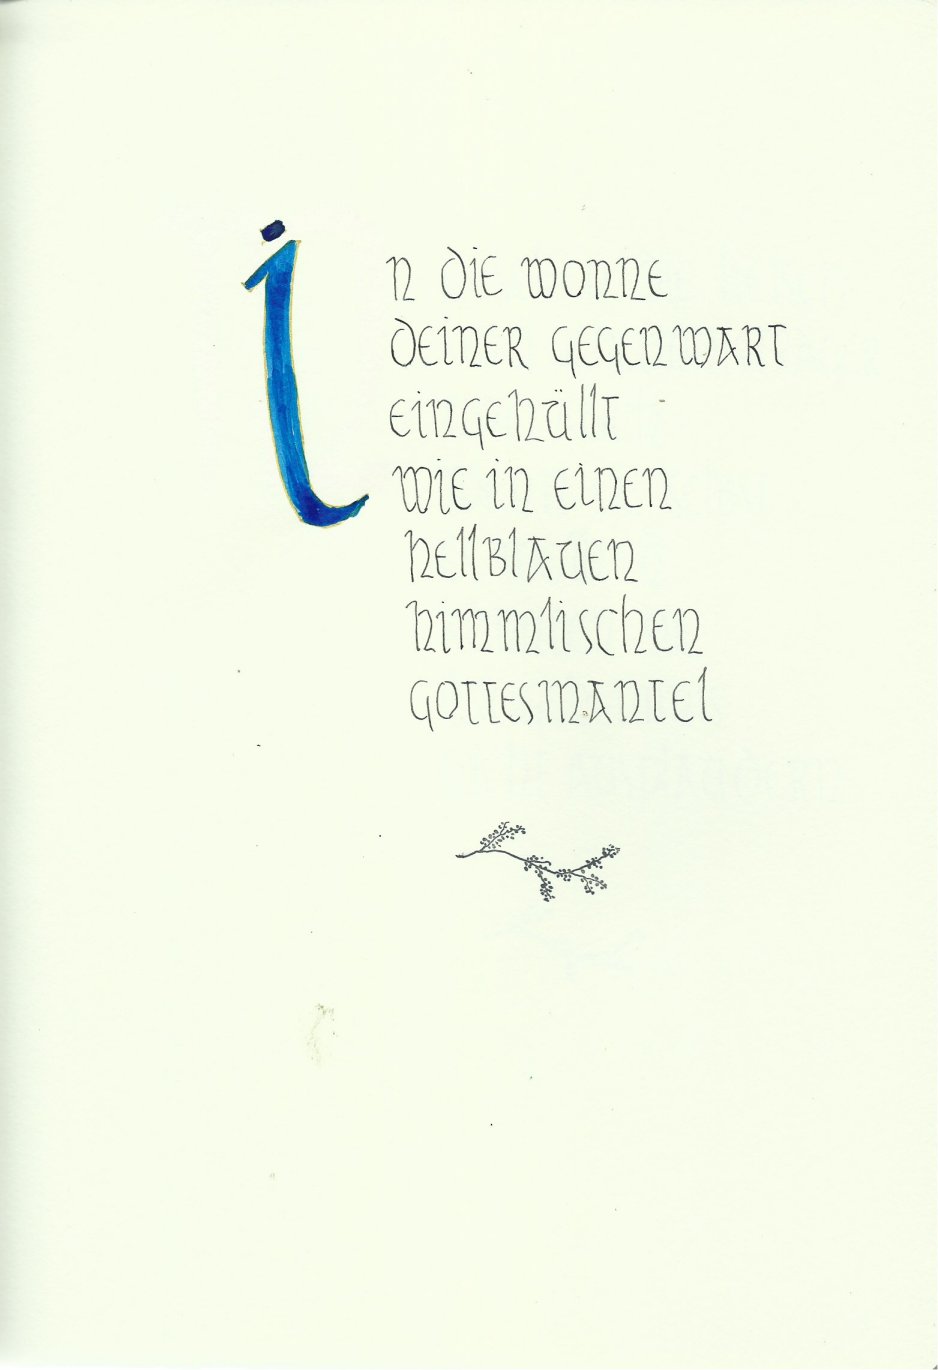 in die wonne
deiner gegenwart
eingehüllt
wie in einen
hellblauen
himmlischen
gottesmantel